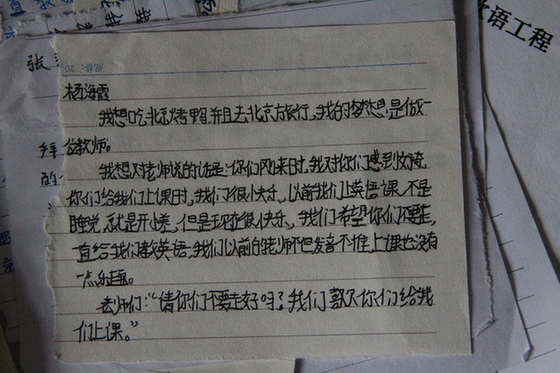 杨海霞
我想吃北京烤鸭,并且去北京旅行。我的梦想是做一
名教师。
我想对老师说的话是:你们刚来时,我对你们感到好奇,
你们给我们上课时,我们很快乐。以前我们上英语课,不是
睡觉,就是开小差,但是现在很快乐。我们希望你们
直给我们教英语。我们以前的老师不但发音不准,上课也没有
一点乐趣。
老师们:“请你们不要走好吗?我们喜欢你们给我
们上课。”
语工程
张